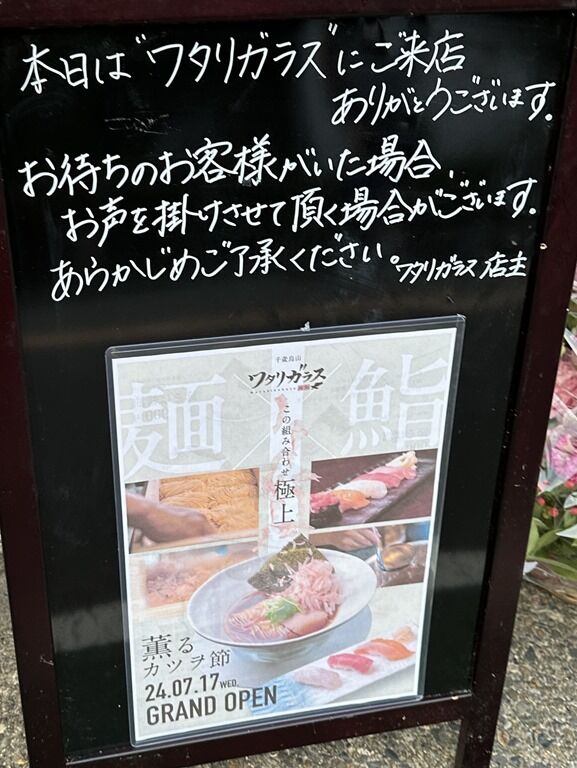 本日は"ワタリガラス"にご来店
ありがとうございます。
お待ちのお客様がいた場合、
お声を掛けさせて頂く場合がございます。
あらかじめご了承ください。ワタリガラス 店主
千歳烏山
ワタリガラス
麺×鮨
この組み合わせ極上
薫る
カツヲ節
24.07.17WED.
GRAND OPEN